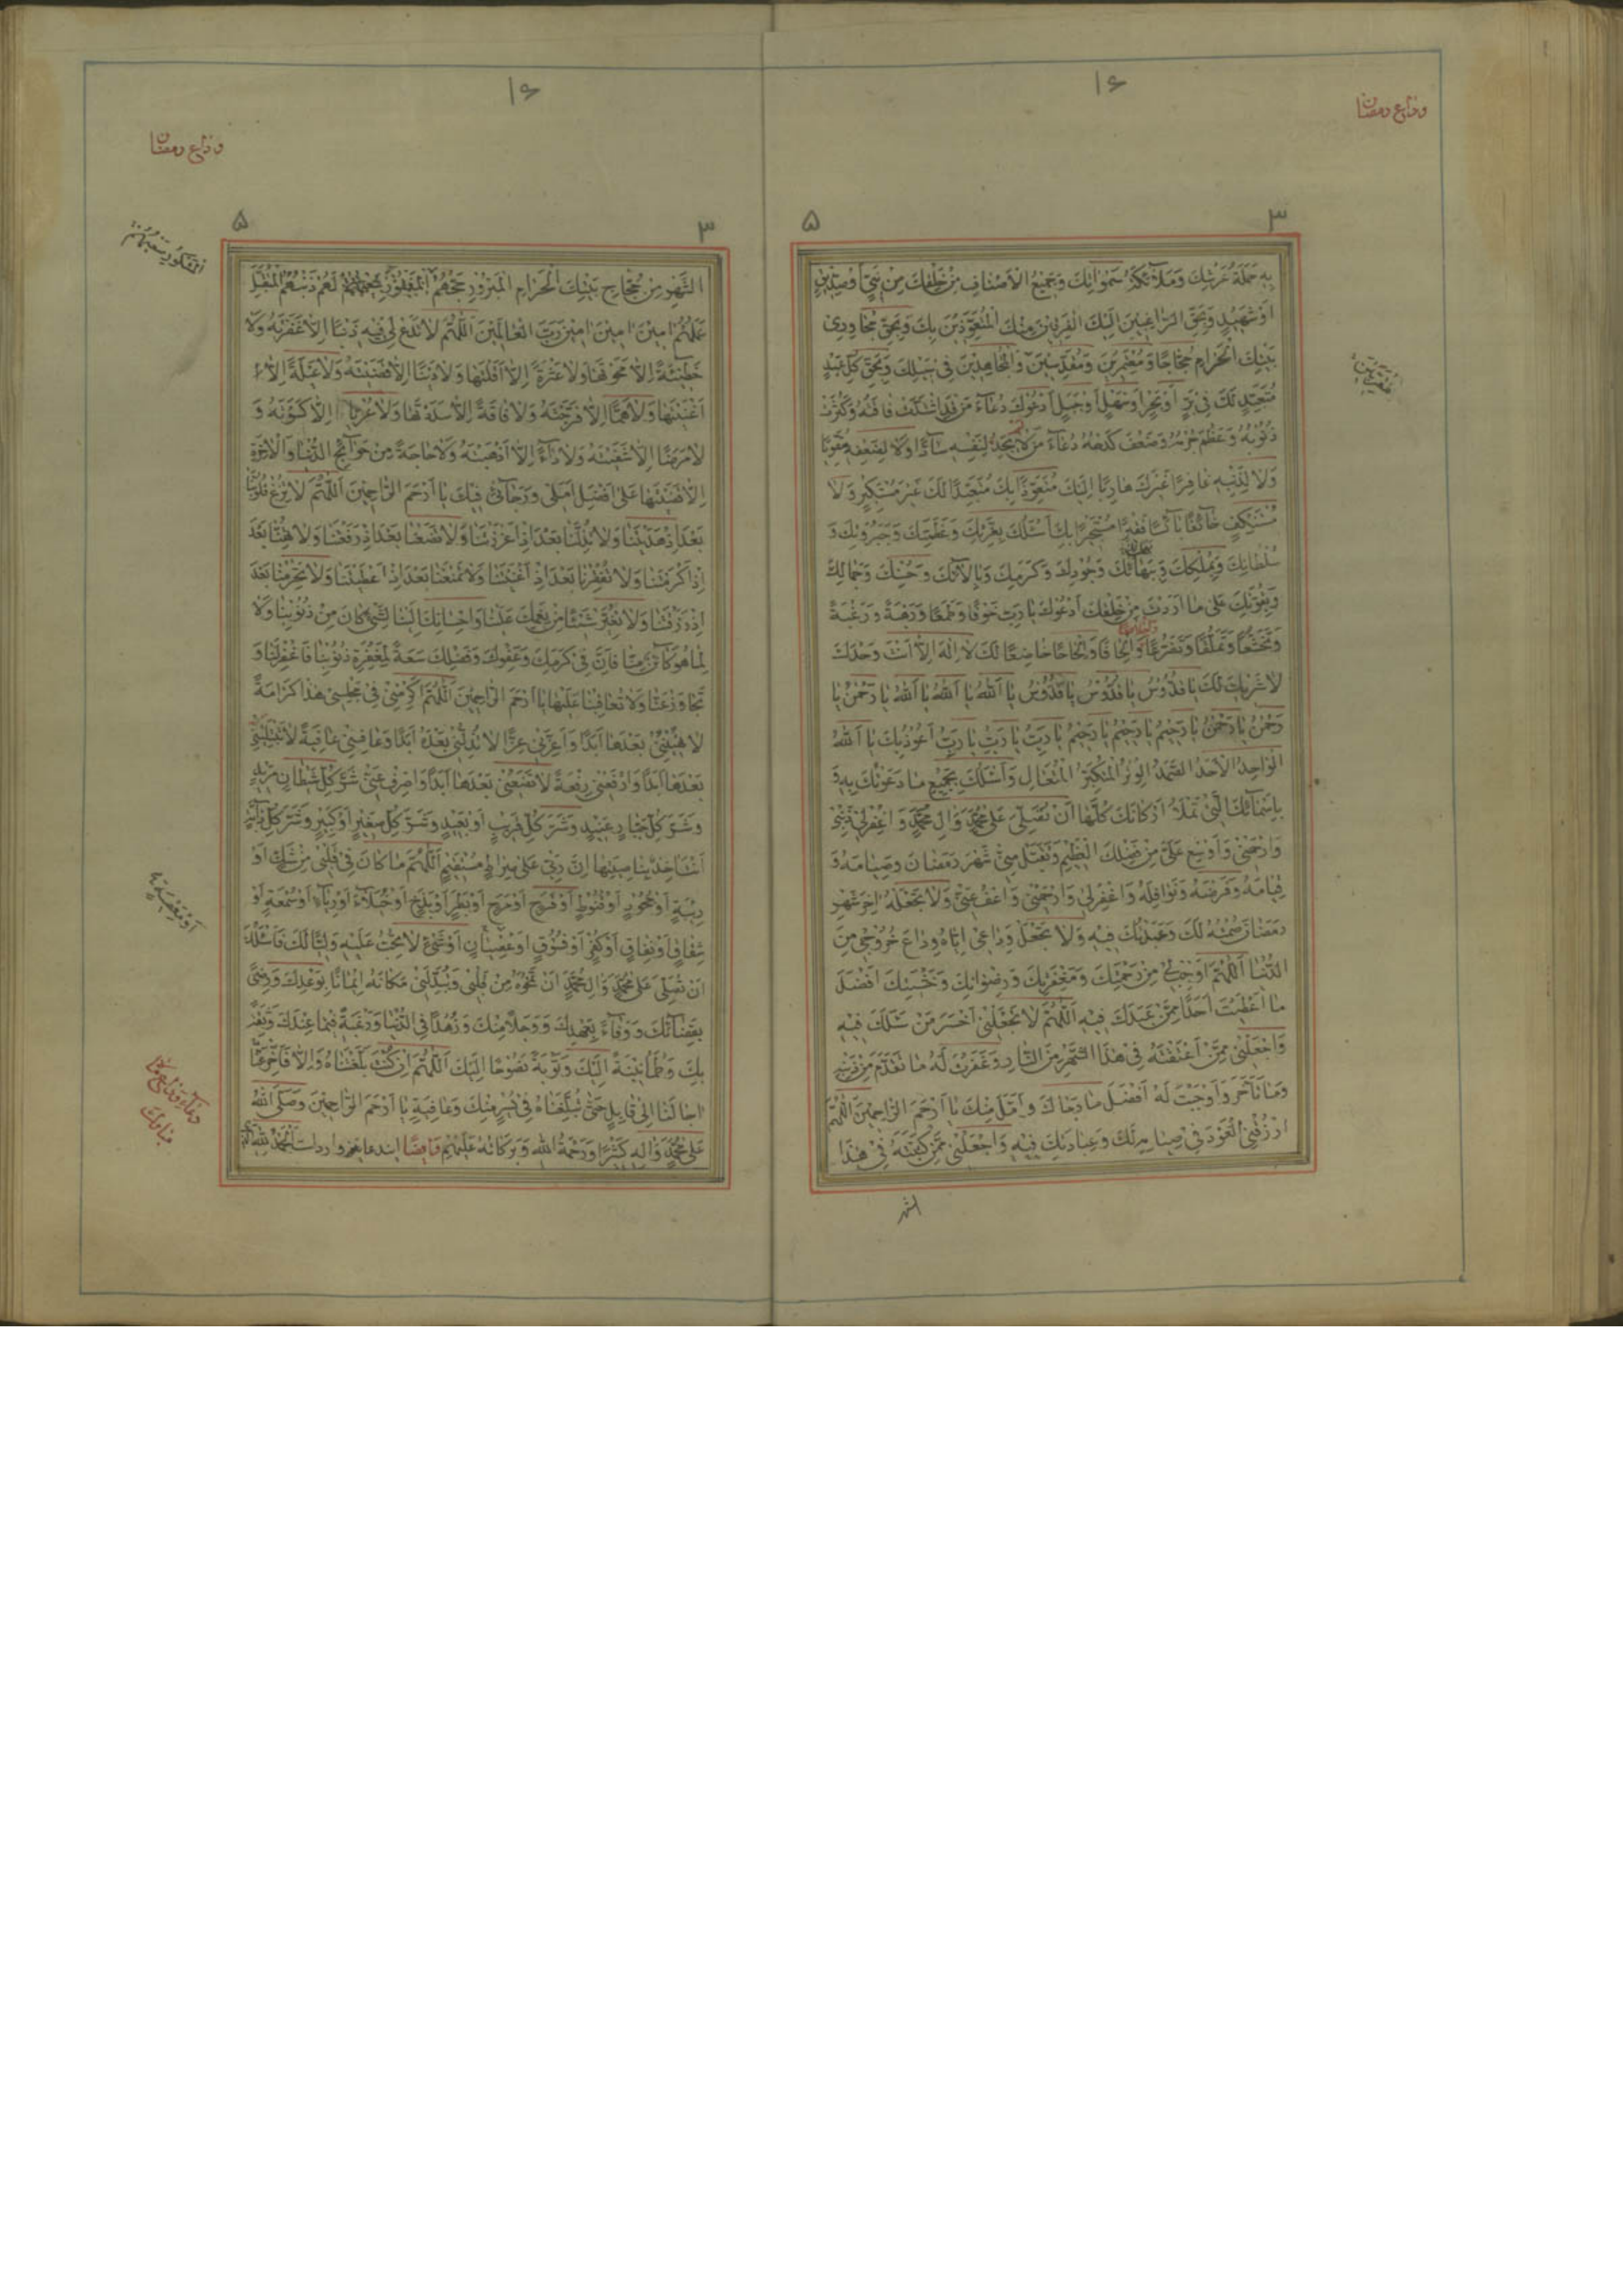 وداع رمضان
۱۶
۳
۵
بِهِ حَمَلَةُ عَرْشِكَ وَمَلٰٓائِكَةُ سَمٰوٰاتِكَ وَجَمِيعُ الْاَصْنٰافِ مِنْ خَلْقِكَ مِنْ نَبِيٍّ اَوْ صِدّيقٍ
اَوْ شَهيدٍ وَبِحَقِّ الرّٰاغِبينَ اِلَيْكَ الْفَرِقينَ مِنْكَ الْمُتَعَوِّذينَ بِكَ وَبِحَقِّ مُجٰاوِري
بَيْتِكَ الْحَرٰامِ حُجّٰاجًا وَمُعْتَمِرينَ وَمُقَدِّسينَ وَالْمُجٰاهِدينَ في سَبيلِكَ وَبِحَقِّ كُلِّ عَبْدٍ
مُتَعَبِّدٍ لَكَ في بَرٍّ اَوْ بَحْرٍ اَوْ سَهْلٍ اَوْ جَبَلٍ اَدْعُوكَ دُعٰآءَ مَنْ قَدِ اشْتَدَّتْ فٰاقَتُهُ وَكَثُرَتْ
ذُنُوبُهُ وَعَظُمَ جُرْمُهُ وَضَعُفَ كَدْحُهُ دُعٰآءَ مَنْ لٰا يَجِدُ لِنَفْسِهِ سٰآدًّا وَلٰا لِضَعْفِهِ مُقَوِّيًا
وَلٰا لِذَنْبِهِ غٰافِرًا غَيْرَكَ هٰارِبًا اِلَيْكَ مُتَعَوِّذًا بِكَ مُتَعَبِّدًا لَكَ غَيْرَ مُسْتَكْبِرٍ وَلٰا
مُسْتَنْكِفٍ خٰآئِفًا بٰآئِسًا فَقيرًا مُسْتَجيرًا بِكَ اَسْئَلُكَ بِعِزَّتِكَ وَعَظَمَتِكَ وَجَبَرُوتِكَ وَ
سُلْطٰانِكَ وَبِمُلْكِكَ وَبِبَهٰآئِكَ وَجُودِكَ وَكَرَمِكَ وَبِاٰلٰآئِكَ وَحُسْنِكَ وَجَمٰالِكَ
وَبِقُوَّتِكَ عَلٰى مٰا اَرَدْتَ مِنْ خَلْقِكَ اَدْعُوكَ يٰا رَبِّ خَوْفًا وَطَمَعًا وَرَهْبَةً وَرَغْبَةً
وَتَخَشُّعًا وَتَمَلُّقًا وَتَضَرُّعًا وَاِلْحٰافًا وَاِلْحٰاحًا خٰاضِعًا لَكَ لٰا اِلٰهَ اِلّٰا اَنْتَ وَحْدَكَ
لٰا شَرِيكَ لَكَ يٰا قُدُّوسُ يٰا قُدُّوسُ يٰا قُدُّوسُ يٰا اَللّٰهُ يٰا اَللّٰهُ يٰا اَللّٰهُ يٰا رَحْمٰنُ يٰا
رَحْمٰنُ يٰا رَحْمٰنُ يٰا رَحيمُ يٰا رَحيمُ يٰا رَحيمُ يٰا رَبِّ يٰا رَبِّ يٰا رَبِّ اَعُوذُ بِكَ يٰا اَللّٰهُ
الْوٰاحِدُ الْاَحَدُ الصَّمَدُ الْوِتْرُ الْمُتَكَبِّرُ الْمُتَعٰالِ وَاَسْئَلُكَ بِجَميعِ مٰا دَعَوْتُكَ بِهِ وَ
بِاَسْمٰآئِكَ الَّتي تَمْلَأُ اَرْكٰانَكَ كُلَّهٰا اَنْ تُصَلِّيَ عَلٰى مُحَمَّدٍ وَاٰلِ مُحَمَّدٍ وَاغْفِرْ لي ذَنْبي
وَارْحَمْني وَاَوْسِعْ عَلَيَّ مِنْ فَضْلِكَ الْعَظيمِ وَتَقَبَّلْ مِنّي شَهْرَ رَمَضٰانَ وَصِيٰامَهُ وَ
قِيٰامَهُ وَفَرْضَهُ وَنَوٰافِلَهُ وَاغْفِرْ لي وَارْحَمْني وَاعْفُ عَنّي وَلٰا تَجْعَلْهُ اٰخِرَ شَهْرِ
رَمَضٰانَ صُمْتُهُ لَكَ وَعَبَدْتُكَ فيهِ وَلٰا تَجْعَلْ وَدٰاعي اِيّٰاهُ وِدٰاعَ خُرُوجي مِنَ
الدُّنْيٰا اَللّٰهُمَّ اَوْجِبْ لي مِنْ رَحْمَتِكَ وَمَغْفِرَتِكَ وَرِضْوٰانِكَ وَخَشْيَتِكَ اَفْضَلَ
مٰا اَعْطَيْتَ اَحَدًا مِمَّنْ عَبَدَكَ فيهِ اَللّٰهُمَّ لٰا تَجْعَلْني اَخْسَرَ مَنْ سَئَلَكَ فيهِ
وَاجْعَلْني مِمَّنْ اَعْتَقْتَهُ في هٰذَا الشَّهْرِ مِنَ النّٰارِ وَغَفَرْتَ لَهُ مٰا تَقَدَّمَ مِنْ ذَنْبِهِ
وَمٰا تَأَخَّرَ وَاَوْجَبْتَ لَهُ اَفْضَلَ مٰا رَجٰاكَ وَاَمَّلَ مِنْكَ يٰا اَرْحَمَ الرّٰاحِمينَ اَللّٰهُمَّ
ارْزُقْنِي الْعَوْدَ في صِيٰامِهِ لَكَ وَعِبٰادَتِكَ فيهِ وَاجْعَلْني مِمَّنْ كَتَبْتَهُ في هٰذَا
الشهر
وداع رمضان
۱۶
۳
۵
الشَّهْرِ مِنْ حُجّٰاجِ بَيْتِكَ الْحَرٰامِ الْمَبْرُورِ حَجُّهُمُ الْمَغْفُورِ لَهُمْ ذَنْبُهُمُ الْمُتَقَبَّلِ
الْمَشْكُورِ سَعْيُهُمْ
عَمَلُهُمْ اٰمينَ اٰمينَ اٰمينَ رَبَّ الْعٰالَمينَ اَللّٰهُمَّ لٰا تَدَعْ لي فيهِ ذَنْبًا اِلّٰا غَفَرْتَهُ وَلٰا
خَطيئَةً اِلّٰا مَحَوْتَهٰا وَلٰا عَثْرَةً اِلّٰا اَقَلْتَهٰا وَلٰا دَيْنًا اِلّٰا قَضَيْتَهُ وَلٰا عَيْلَةً اِلّٰا
اَغْنَيْتَهٰا وَلٰا هَمًّا اِلّٰا فَرَّجْتَهُ وَلٰا فٰاقَةً اِلّٰا سَدَدْتَهٰا وَلٰا عُرْيًا اِلّٰا كَسَوْتَهُ وَ
لٰا مَرَضًا اِلّٰا شَفَيْتَهُ وَلٰا دٰآءً اِلّٰا اَذْهَبْتَهُ وَلٰا حٰاجَةً مِنْ حَوٰآئِجِ الدُّنْيٰا وَالْاٰخِرَةِ
اِلّٰا قَضَيْتَهٰا عَلٰى اَفْضَلِ اَمَلي وَرَجٰآئي فيكَ يٰا اَرْحَمَ الرّٰاحِمينَ اَللّٰهُمَّ لٰا تُزِغْ قُلُوبَنٰا
بَعْدَ اِذْ هَدَيْتَنٰا وَلٰا تُذِلَّنٰا بَعْدَ اِذْ اَعْزَزْتَنٰا وَلٰا تَضَعْنٰا بَعْدَ اِذْ رَفَعْتَنٰا وَلٰا تُهِنّٰا بَعْدَ
اِذْ اَكْرَمْتَنٰا وَلٰا تُفْقِرْنٰا بَعْدَ اِذْ اَغْنَيْتَنٰا وَلٰا تَمْنَعْنٰا بَعْدَ اِذْ اَعْطَيْتَنٰا وَلٰا تَحْرِمْنٰا بَعْدَ
اِذْ رَزَقْتَنٰا وَلٰا تُغَيِّرْ شَيْئًا مِنْ نِعَمِكَ عَلَيْنٰا وَاِحْسٰانِكَ اِلَيْنٰا لِشَيْءٍ كٰانَ مِنْ ذُنُوبِنٰا وَلٰا
لِمٰا هُوَ كٰآئِنٌ مِنّٰا فَاِنَّ في كَرَمِكَ وَعَفْوِكَ وَفَضْلِكَ سَعَةً لِمَغْفِرَةِ ذُنُوبِنٰا فَاغْفِرْ لَنٰا وَ
تَجٰاوَزْ عَنّٰا وَلٰا تُعٰاقِبْنٰا عَلَيْهٰا يٰا اَرْحَمَ الرّٰاحِمينَ اَللّٰهُمَّ اَكْرِمْني في مَجْلِسي هٰذٰا كَرٰامَةً
لٰا تُهينُني بَعْدَهٰا اَبَدًا وَاَعِزَّني عِزًّا لٰا تُذِلُّني بَعْدَهُ اَبَدًا وَعٰافِني عٰافِيَةً لٰا تَبْتَليني
بَعْدَهٰا اَبَدًا وَارْفَعْني رِفْعَةً لٰا تَضَعُني بَعْدَهٰا اَبَدًا وَاصْرِفْ عَنّي شَرَّ كُلِّ شَيْطٰانٍ مَريدٍ
وَشَرَّ كُلِّ جَبّٰارٍ عَنيدٍ وَشَرَّ كُلِّ قَريبٍ اَوْ بَعيدٍ وَشَرَّ كُلِّ صَغيرٍ اَوْ كَبيرٍ وَشَرَّ كُلِّ دٰآبَّةٍ
اَنْتَ اٰخِذٌ بِنٰاصِيَتِهٰا اِنَّ رَبّي عَلٰى صِرٰاطٍ مُسْتَقيمٍ اَللّٰهُمَّ مٰا كٰانَ في قَلْبي مِنْ شَكٍّ اَوْ
رِيبَةٍ اَوْ جُحُودٍ اَوْ قُنُوطٍ اَوْ فَرَحٍ اَوْ مَرَحٍ اَوْ بَطَرٍ اَوْ بَذَخٍ اَوْ خُيَلٰآءَ اَوْ رِيٰآءٍ اَوْ سُمْعَةٍ اَوْ
اَوْ مَعْصِيَةٍ
شِقٰاقٍ اَوْ نِفٰاقٍ اَوْ كُفْرٍ اَوْ فُسُوقٍ اَوْ عِصْيٰانٍ اَوْ شَيْءٍ لٰا تُحِبُّ عَلَيْهِ وَلِيًّا لَكَ فَاَسْئَلُكَ
اَنْ تُصَلِّيَ عَلٰى مُحَمَّدٍ وَاٰلِ مُحَمَّدٍ اَنْ تَمْحُوَهُ مِنْ قَلْبي وَتُبَدِّلَني مَكٰانَهُ ايمٰانًا بِوَعْدِكَ وَرِضًى
بِقَضٰآئِكَ وَوَفٰآءً بِعَهْدِكَ وَوَجَلًا مِنْكَ وَزُهْدًا فِي الدُّنْيٰا وَرَغْبَةً فيمٰا عِنْدَكَ وَثِقَةً
بِكَ وَطُمَأْنينَةً اِلَيْكَ وَتَوْبَةً نَصُوحًا اِلَيْكَ اَللّٰهُمَّ اِنْ كُنْتَ بَلَّغْتَنٰاهُ وَاِلّٰا فَاَخِّرْ
اٰجٰالَنٰا اِلٰى قٰابِلٍ حَتّٰى تُبَلِّغَنٰاهُ في يُسْرٍ مِنْكَ وَعٰافِيَةٍ يٰا اَرْحَمَ الرّٰاحِمينَ وَصَلَّى اللّٰهُ
عَلٰى مُحَمَّدٍ وَاٰلِهِ كَثيرًا وَرَحْمَةُ اللّٰهِ وَبَرَكٰاتُهُ عَلَيْهِمْ وايضًا ايندعا هم وارد است اَلْحَمْدُ لِلّٰهِ